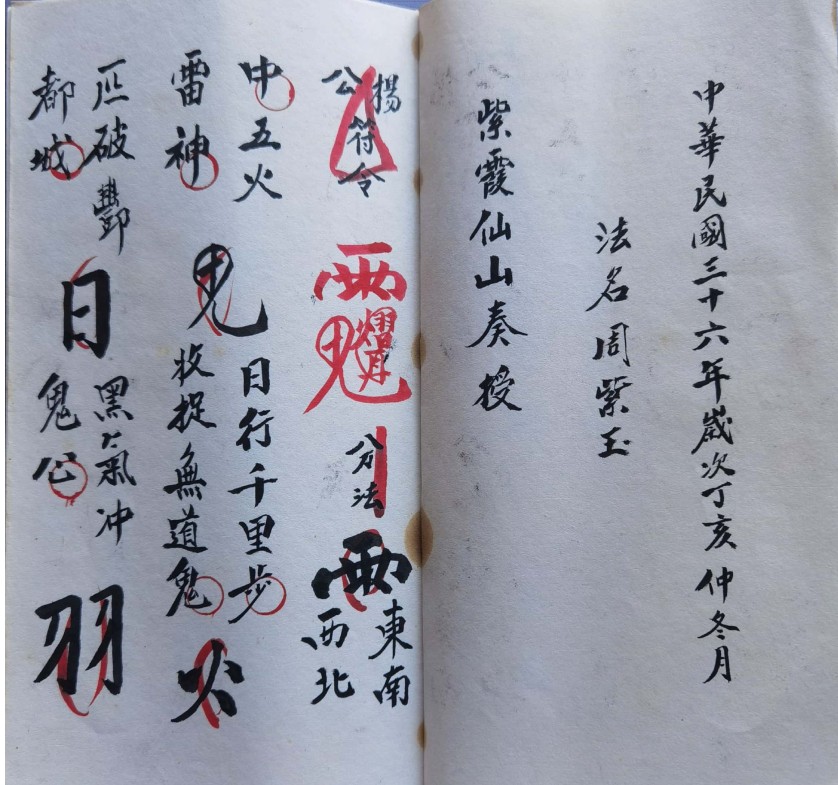 中華民國三十六年歲次丁亥仲冬月
法名周紫玉
紫霞仙山奏授
楊公符令
分法
雨
東南
西北
中五火
雷神
甩
日行千里步
收捉無道鬼
火
破酆
都城
日
黑氣冲
鬼公
羽